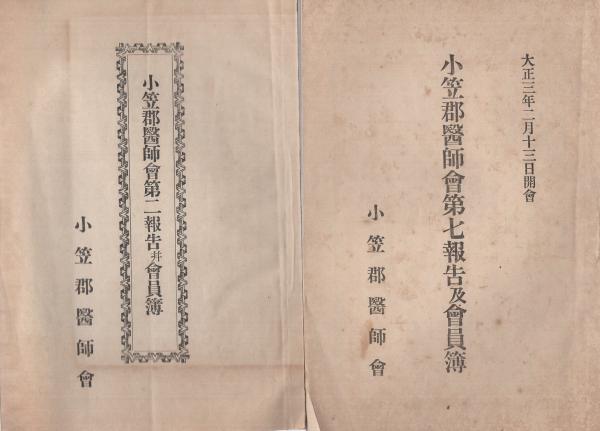 大正三年二月十三日開會
小笠郡醫師會第七報告及會員簿
小笠郡醫師會
小笠郡醫師會第二報告幷會員簿
小笠郡醫師會